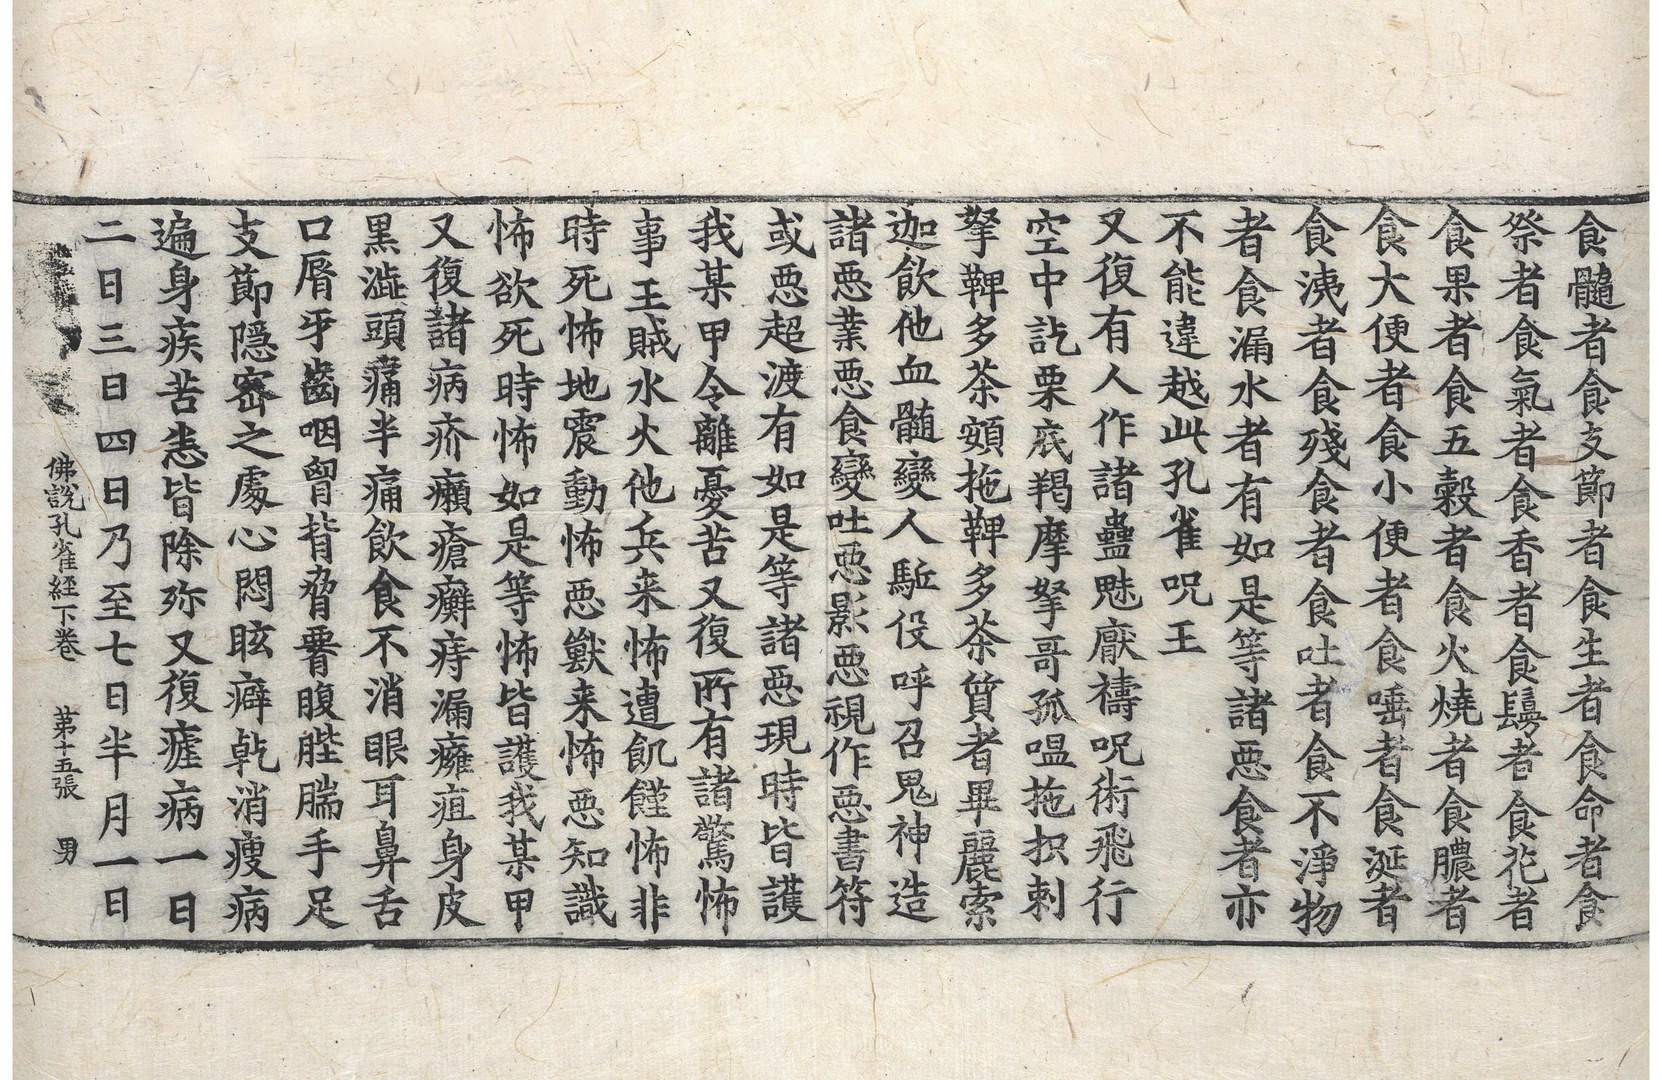 食髓者食支節者食生者食命者食
祭者食氣者食香者食鬘者食花者
食果者食五穀者食火燒者食膿者
食大便者食小便者食唾者食涎者
食洟者食殘食者食吐者食不淨物
者食漏水者有如是等諸惡食者亦
不能違越此孔雀呪王
又復有人作諸蠱魅厭禱呪術飛行
空中訖栗底羯摩拏哥孤嗢拖抧剌
拏鞞多荼頞拖鞞多荼質者畢麗索
迦飲他血髓變人駈役呼召鬼神造
諸惡業惡食變吐惡影惡視作惡書符
或惡超渡有如是等諸惡現時皆護
我某甲令離憂苦又復所有諸驚怖
事王賊水火他兵来怖遭飢饉怖非
時死怖地震動怖惡獸来怖惡知識
怖欲死時怖如是等怖皆護我某甲
又復諸病疥癩瘡癬痔漏癰疽身皮
黒澁頭痛半痛飲食不消眼耳鼻舌
口脣牙齒咽胷背脅署腹䏶腨手足
支節隱宻之處心悶眩癖乹消瘦病
遍身疾苦恚皆除弥又復瘧病一日
二日三日四日乃至七日半月一日
佛說孔雀経下巻 第十五張 男